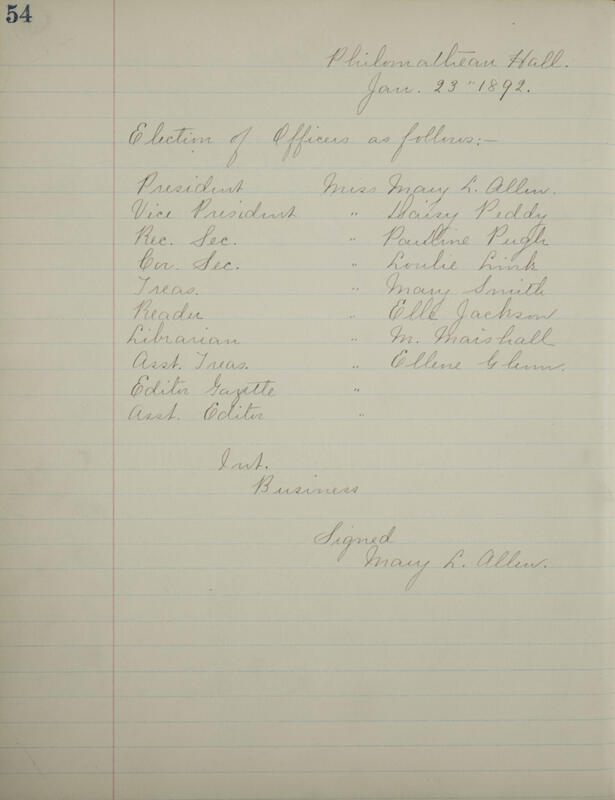 54
Philomathean Hall.
Jan. 23" 1892.
Election of Officers as follows:—
President Miss Mary L. Allen.
Vice President " Daisy Peddy
Rec. Sec. " Pauline Pugh
Cor. Sec. " Loulie Link
Treas. " Mary Smith
Reader " Elle Jackson
Librarian " M. Marshall
Asst. Treas. " Ellene Glenn.
Editor Gazette "
Asst. Editor "
Int.
Business
Signed
Mary L. Allen.